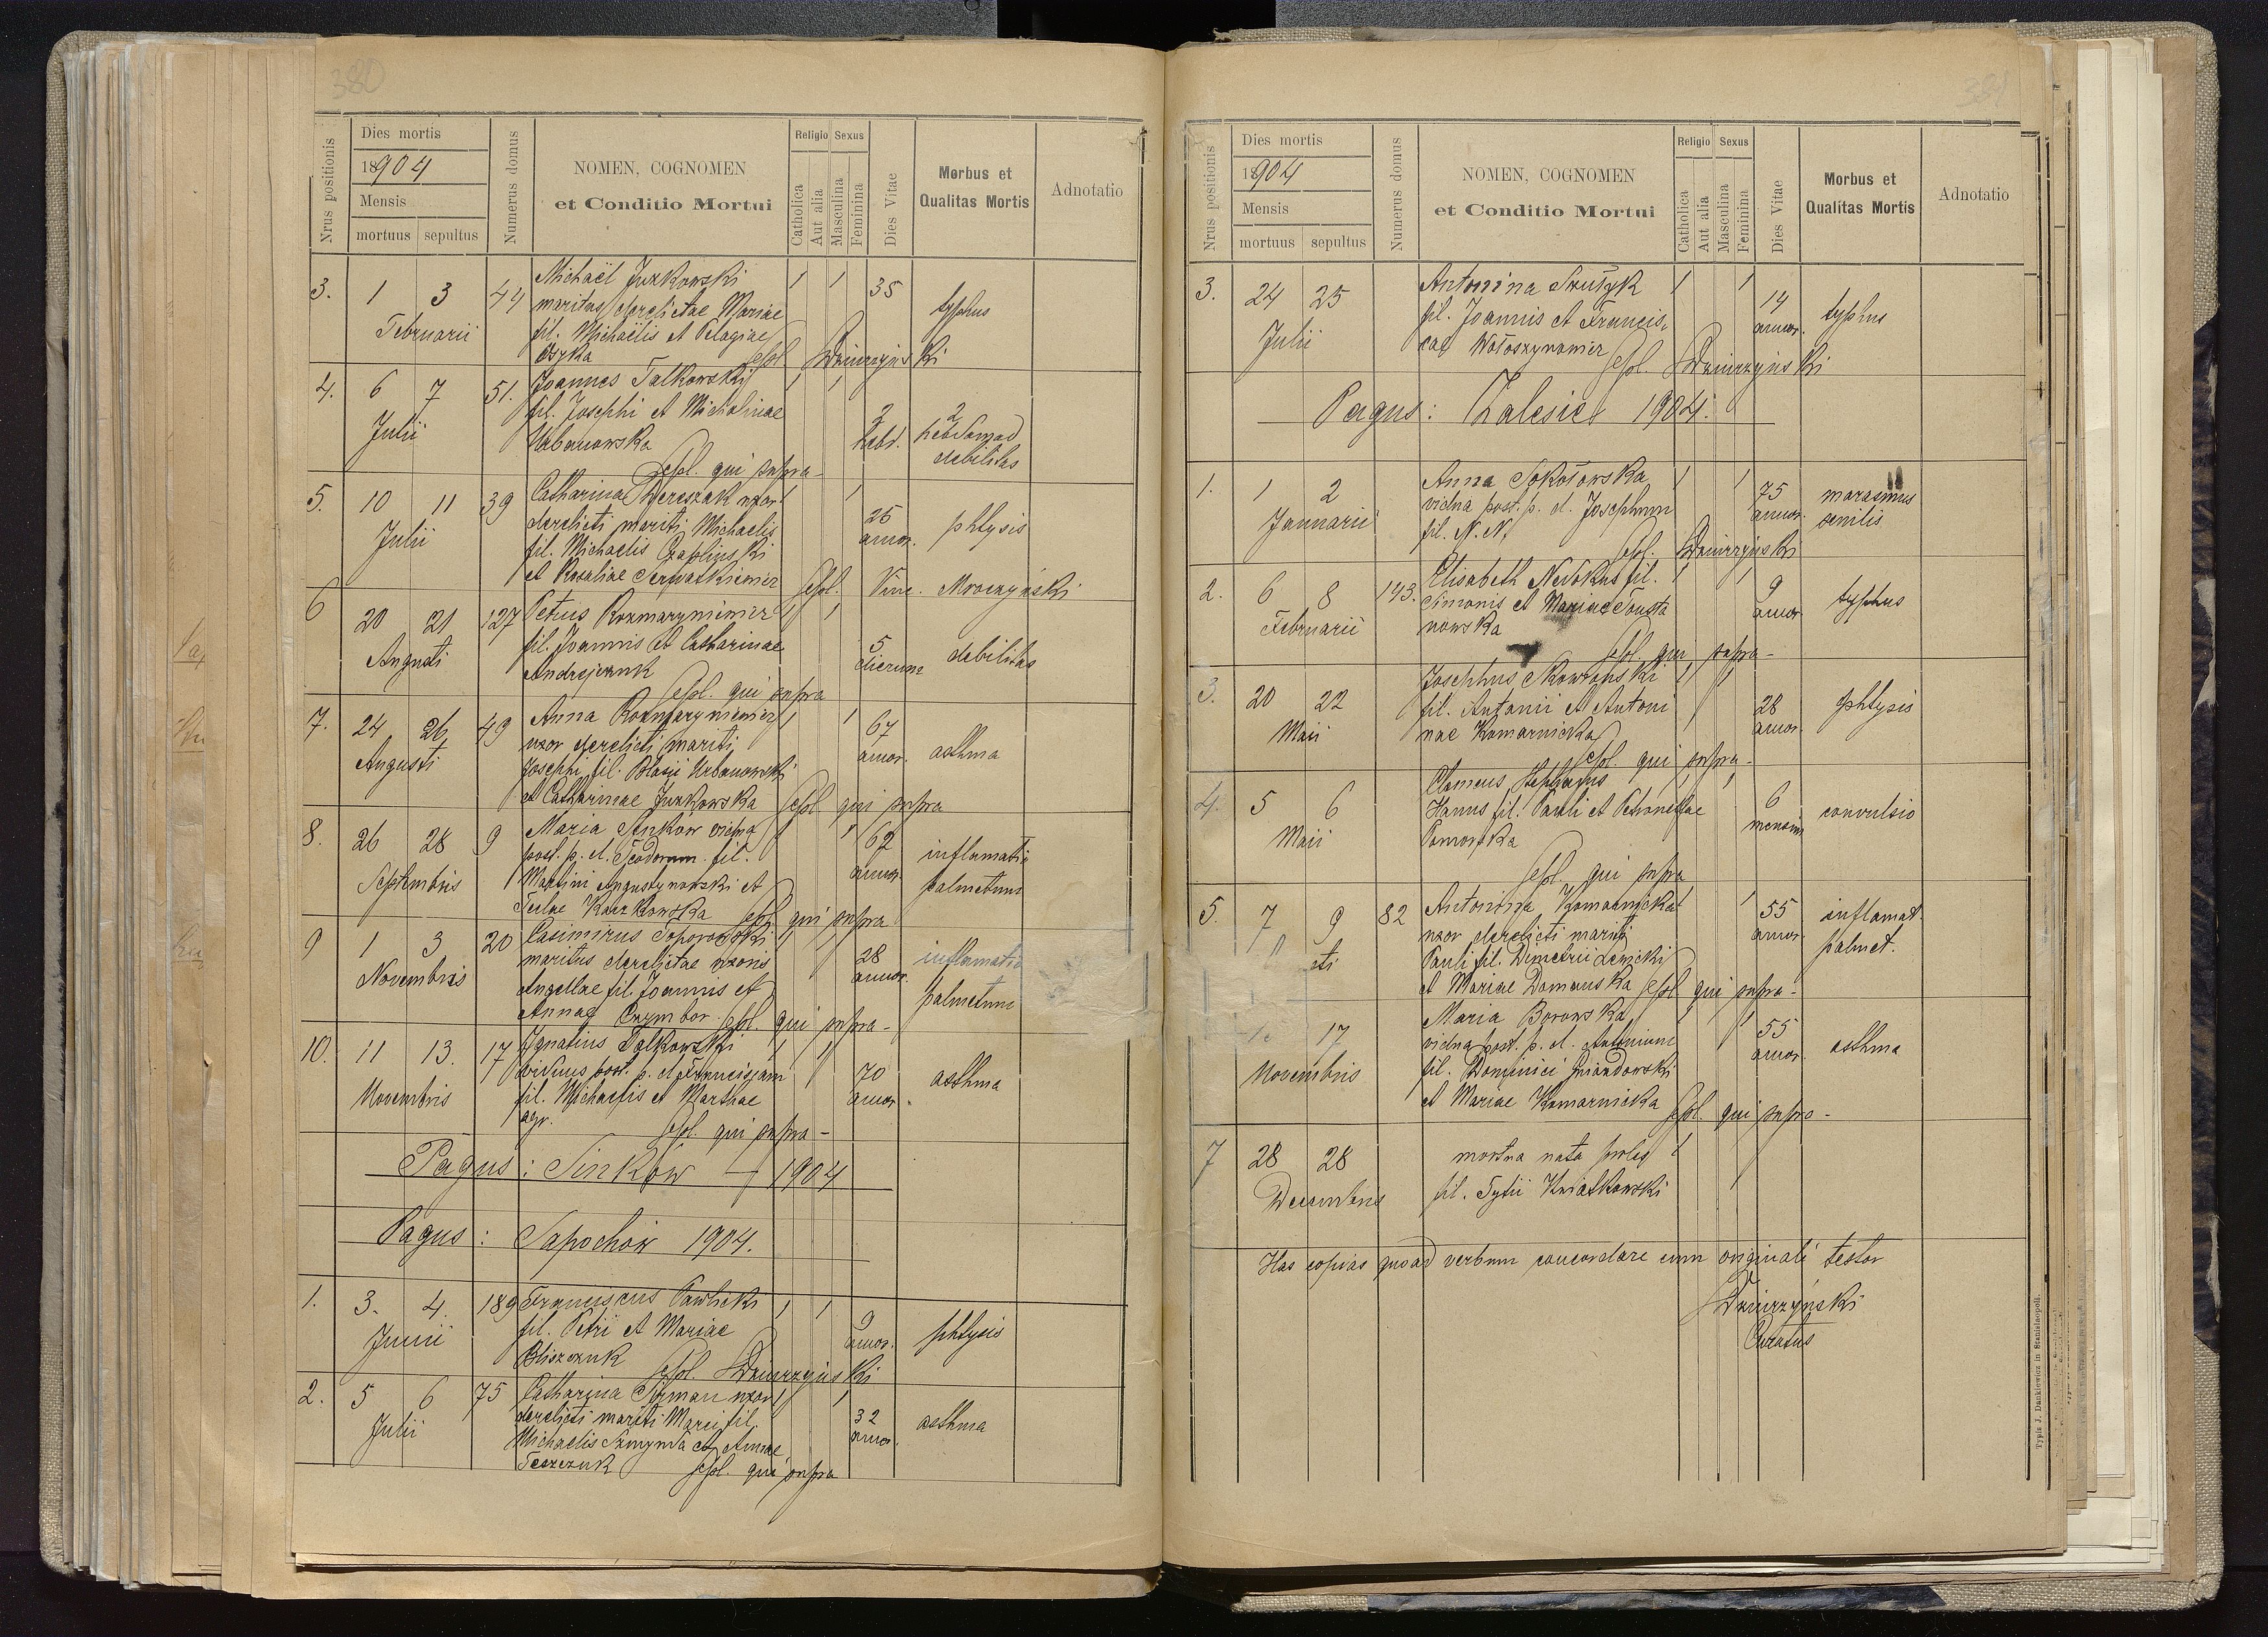 380
Nrus positionis
Dies mortis
1904
Mensis
mortuus sepultus
Numerus domus
NOMEN, COGNOMEN
et Conditio Mortui
Religio Sexus
Catholica
Aut alia
Masculina
Feminina
Dies Vitae
Morbus et
Qualitas Mortis
Adnotatio
3. 1 3 44 Michaël Juzkowski 1 1 35
maritus derelictae Mariae typhus
Februarii fil. Michaëlis et Pelagiae
Sepl. Dziurzyński
4. 6 7 51. Joannes Falkowski 1 1
fil. Josephi et Michalinae 2 2
Julii Urbanowska hebd. hebdomad
debilitas
Sepl. qui supra -
5. 10 11 39 Catharina Dereszak uxor 1 1
derelicti mariti Michaelis 25
Julii fil. Michaelis Czaplinski annor. phtysis
et Rosaliae Serwatkiewicz Sepl. Vinc. Mroczyński
6 20 21 127 Petrus Rozmaryniewicz 1 1
fil. Joannis et Catharinae 5
Augusti Andrejczuk dierum debilitas
Sepl. qui supra
7. 24 26 49 Anna Rozmaryniewicz 1 1 67
uxor derelicti mariti annor. asthma
Augusti Josephi fil. Blasii Urbanowski
et Catharinae Juzkowska Sepl qui supra
8. 26 28 9 Maria Sinków vidua 1 1 62
post. p. d. Teodorum fil. annor. inflamatio
Septembris Martini Augustynowski et palmetum
Teclae Kaczkowska Sepl qui supra
9 1 3 20 Casimirus Toporowski 1 1 28
maritus derelictae uxoris annor. inflamatio
Novembris Angellae fil. Joannis et palmetum
Annae Czymbor Sepl. qui supra -
10. 11 13. 17 Ignatius Falkowski 1 1
viduus post. p. d. Franciscam 70
Novembris fil. Michaelis et Marthae annor. asthma
agr. Sepl. qui supra -
Pagus: Sinków - 1904
Pagus: Sapochów 1904.
1. 3. 4. 189 Franciscus Pawlicki 1 1
fil. Petri et Mariae 9
Junii Bliszczuk annor. phtysis
Sepl. Dziurzyński
2. 5 6 75 Catharina Szman uxor 1 1
derelicti mariti Marci fil. 32
Julii Michaelis Szmynda et Annae annor. asthma
Teszczuk Sepl. qui supra
381
Nrus positionis
Dies mortis
1904
Mensis
mortuus sepultus
Numerus domus
NOMEN, COGNOMEN
et Conditio Mortui
Religio Sexus
Catholica
Aut alia
Masculina
Feminina
Dies Vitae
Morbus et
Qualitas Mortis
Adnotatio
3. 24 25 Antonina Szutyk 1 1 14
fil. Joannis et Francis- annor. typhus
Julii cae Wołoszynowicz
Sepl. Dziurzyński
Pagus: Zalesie 1904.
1. 1 2 Anna Sokołowska 1 1 75 marasmus
vidua post. p. d. Josephum annor. senilis
Januarii fil. N. N.
Sepl. Dziurzyński
2. 6 8 143. Elisabeth Nedokus fil. 1 1 9
Simonis et Mariae Tousta annor typhus
Februarii nowska
Sepl. qui supra -
3. 20 22 Josephus Skowroński 1 1
fil. Antonii et Antoni 28 phtysis
Maii nae Komarnicka annor.
Sepl. qui supra -
4. 5 6 Clemens Stephanus 1 1 6
Hanus fil. Pauli et Petronellae mensium convulsio
Maii Pomorska
Sepl. qui supra
5. 7 9 82 Antonina Komarnicka 1 1 55 inflamat.
uxor derelicti mariti annor. palmet.
sti Pauli fil. Dimetrii Lewicki
et Mariae Domanska Sepl qui supra -
17 Maria Borowska 1 1 55
vidua post. p. d. Antonium annor. asthma
Novembris fil. Dominici Gwiazdowski
et Mariae Komarnicka Sepl. qui supra -
7 28 28 mortua nata proles 1
Decembris fil. Tytii Kwiatkowski 1
Has copias quoad verbum concordare cum originali testor
Dziurzyński
Curatus
Typis J. Dankiewicz in Stanislaopoli.